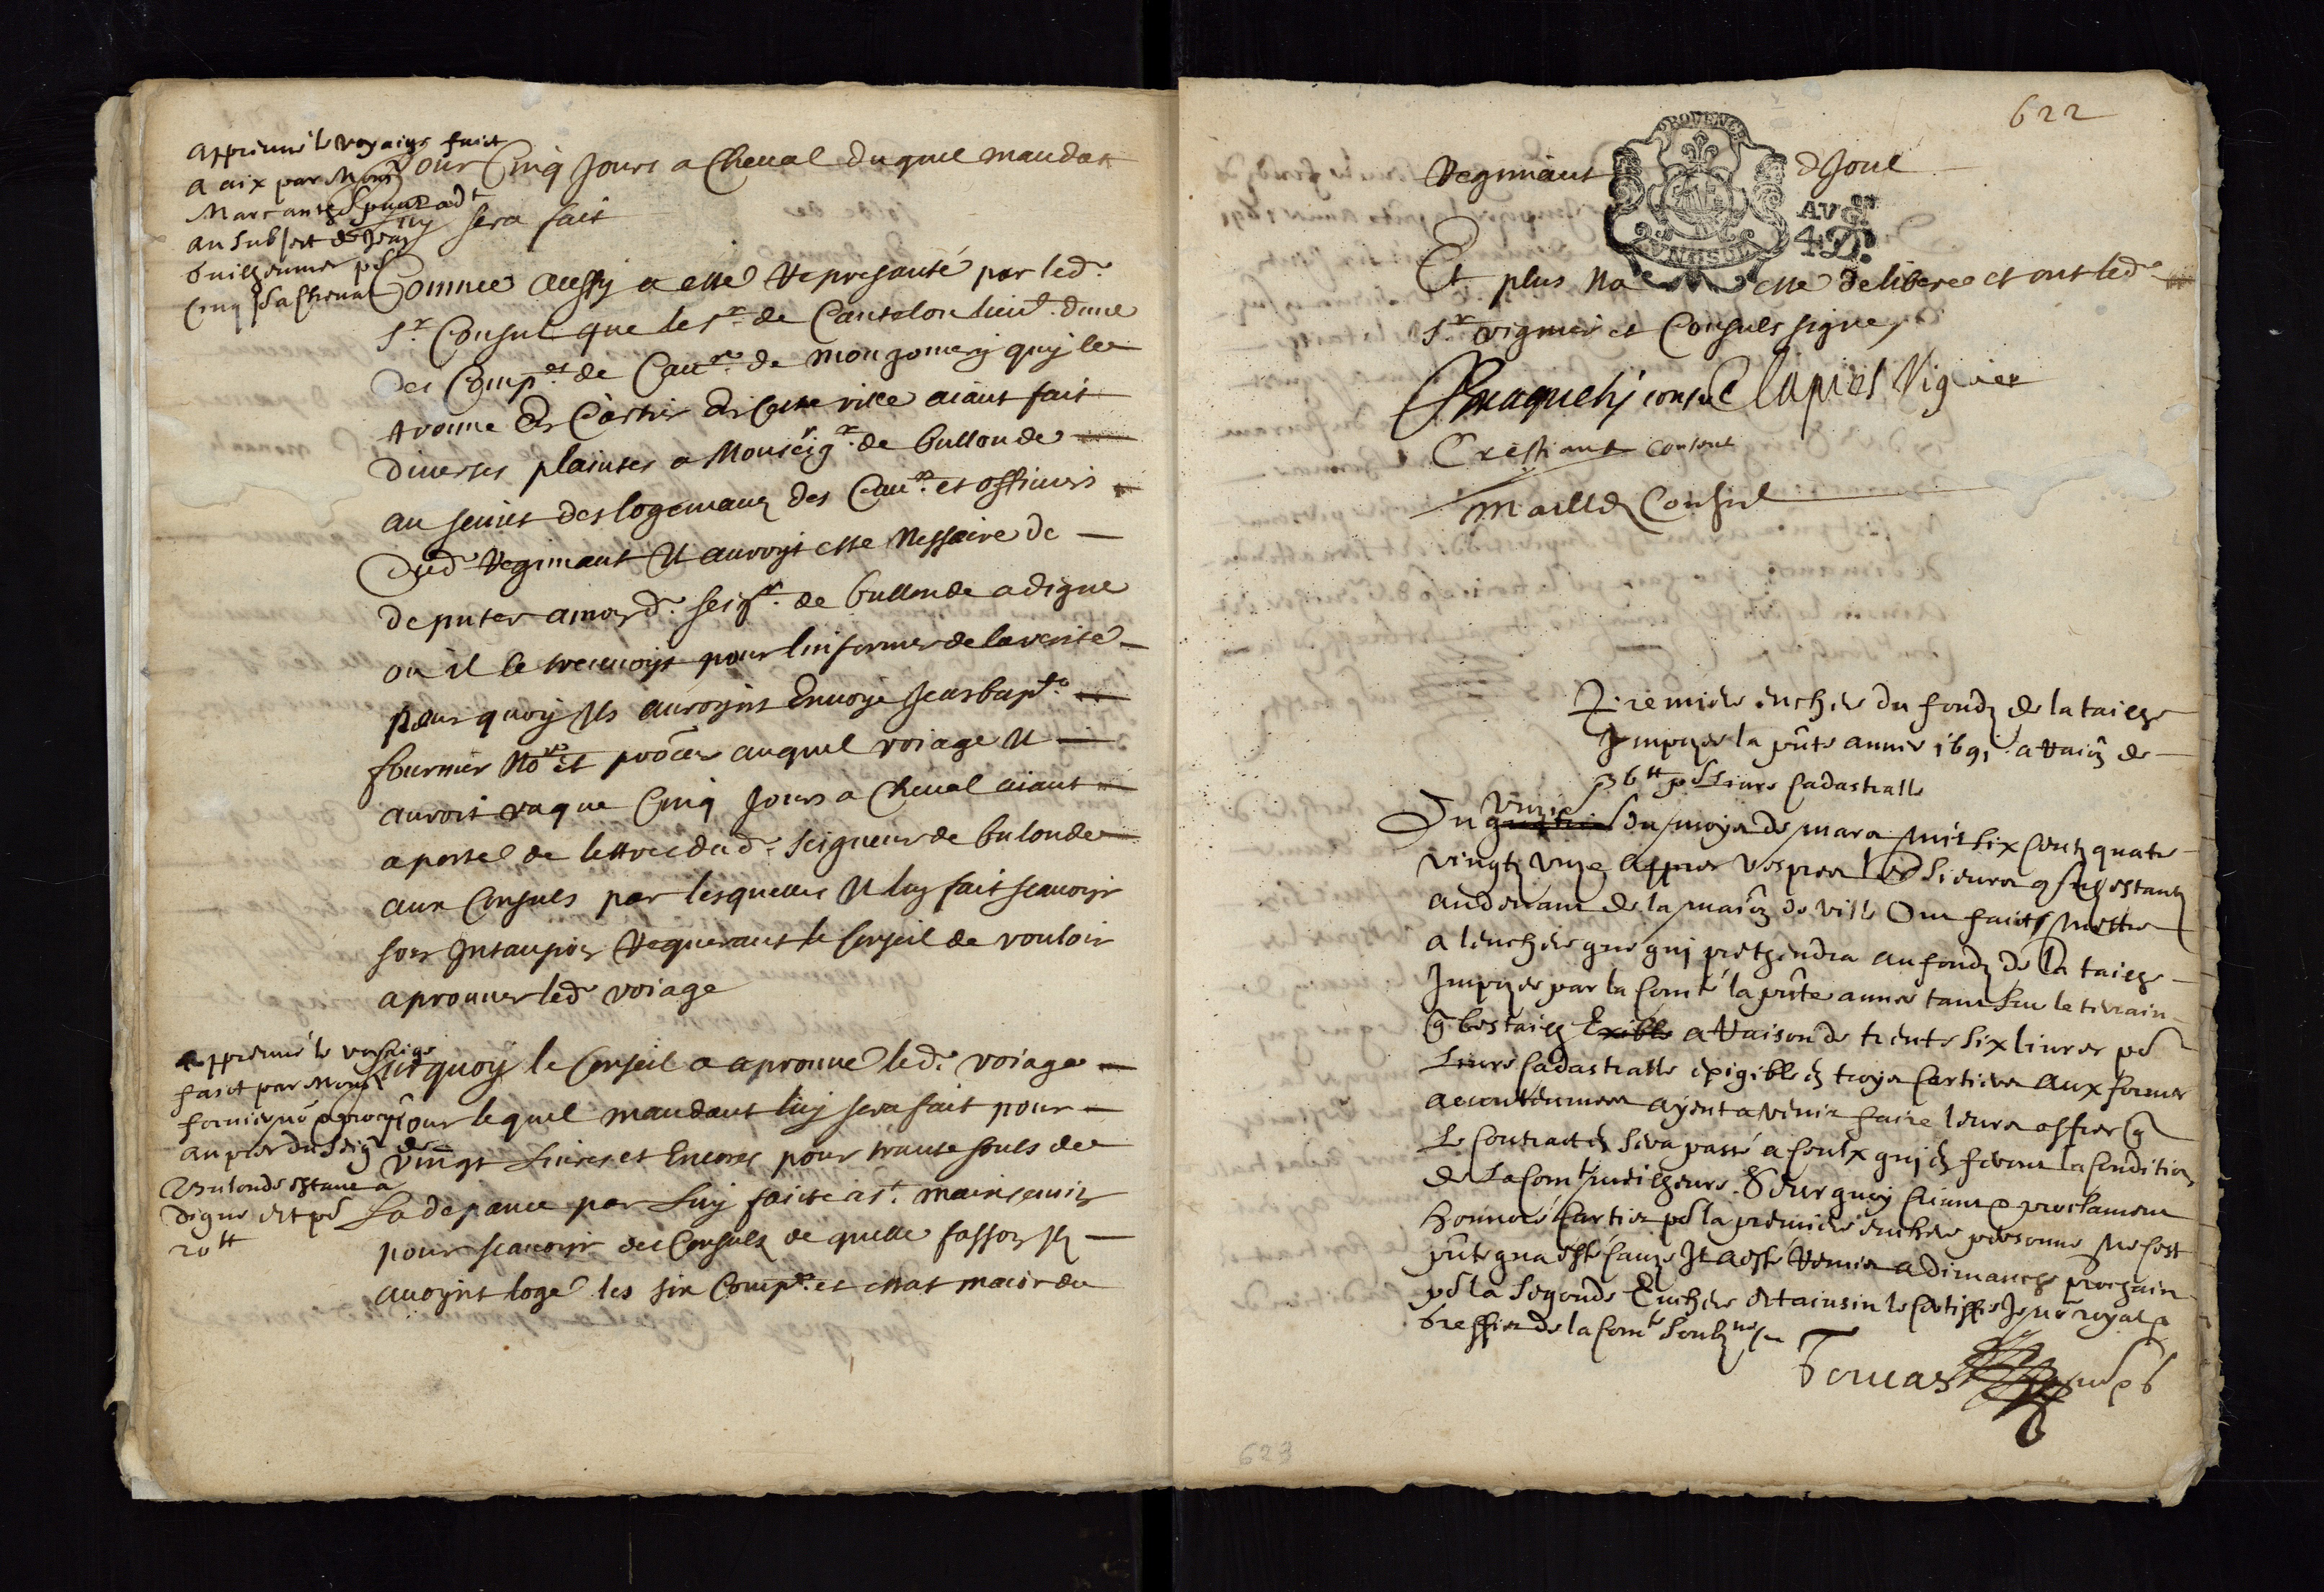 Approuué le voyaige faict
a aix par Monsr
Marcantz advt
au subject de Jean
Guilheaume pr
Cinq js a cheual
pour Cinq Jours a Cheual duquel mandat
luy sera fait
Comme aussy a esté Represanté par led.
sr. Consul que le sr. de Cantelou lieut. dune
des Comp.es de Cau.rie de mongomery quy se
trouue En Cartier En Ceste ville aiant fait
diuerses plaintes a Monseig.r de bullonde
au sujet des logemans des Cau.rs et officiers
dud. Regimant Il auroyt esté Nessaire de
deputer a mond. seig.r de bullonde a digne
ou il se treuuoyt pour linformer de la verité
pour quoy Ils auroynt Enuoyé Jean bap.te
fournier No.re et procur auquel voiage Il
auroit vaqué Cinq Jours a Cheual aiant
aporté de lettres dud. seigneur de bulonde
aux Consuls par lesquelles Il luy fait scauoir
son Intanpion Requerant le Conseil de vouloir
aprouuer led. voiage
Approuué le voyaige
faict par Monsr
fornier no.re & procur
au pres du Seigr de
Bulonde estant a
digne et pr
20 tt
Sur quoy le Conseil a aprouué led. voiage
pour lequel mandant luy sera fait pour
vingt Liures et Encores pour trante souls de
La depance par Luy faicte a st. mainc
pour scauoir des Consuls de quelle fasson Ils
auoynt logé les six Comp.es et estat maior du
622
Regimant dJoul
PROVENCE
AVGon
4 D.
Et plus Na esté deliberé et ont led.
sr. viguier et Consuls signé
consul Clapiés Viguier
Crestians consul
Maille Consul
Premiere enchere du fondz de la tailhe
Impozee la pnte annee 1691 a raion de
36 tt pr Liure Cadastralle
Du vnzie du moys de mars mil six centz quatre
vingtz vnze appres vespres les Sieurs Consulz estantz
au deuant de la maison de ville Ont faict mettre
a lenchere que quy prethendra au fondz de la tailhe
Impozee par la Com.te la pnte annee tant sur le terrain
q bestailh Exible a Raison de trente six liures pr
Liure Cadastralle exigible en troys Cartiers aux formes
accoustumees ayent a venir faire leurs offres q
Le Contract en sera passé a Ceulx quy en feront la Condition
de La Com.te meilheure. Et sur quoy proclament
honnoré Cartier pr la premiere enchere personne Ne sest
pnté qua esté Cauze Jl a esté Remis a dimanche prochain
pr la Segonde Enchere et ainsin le certiffie Je no.re royal &
Greffier de la Com.te soubzne
623